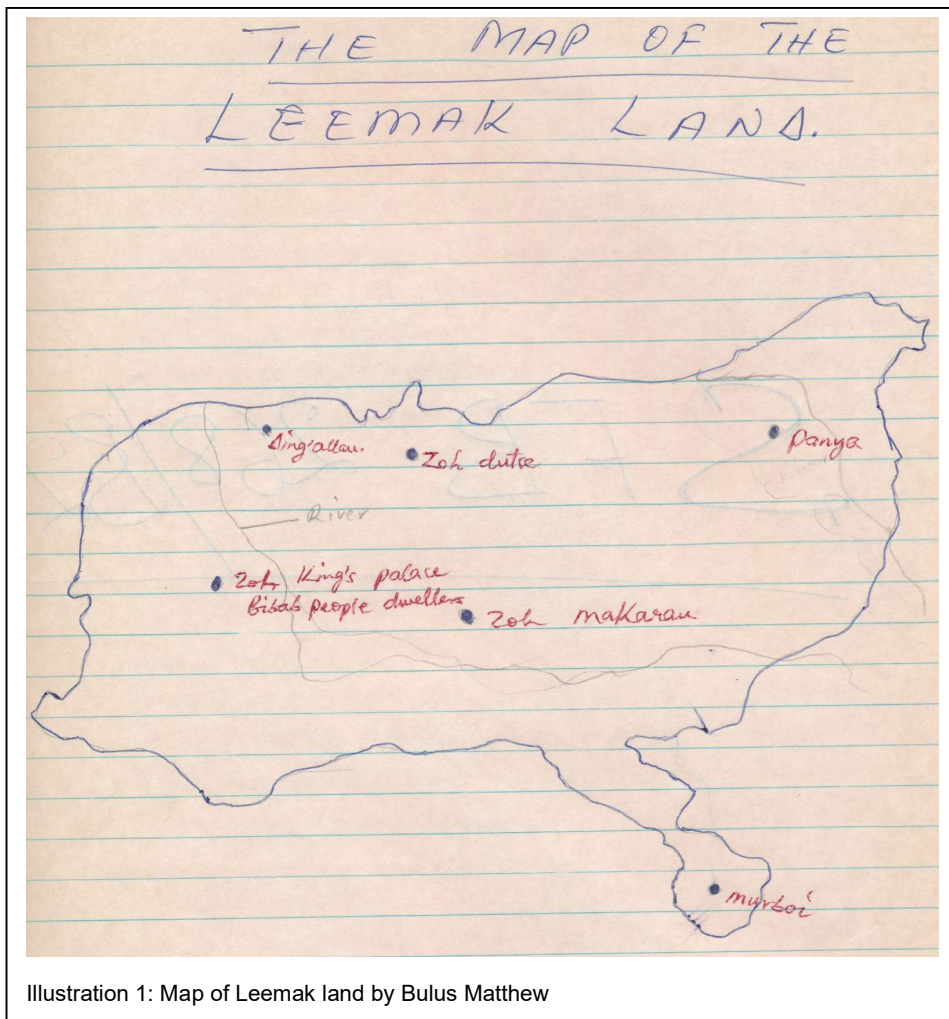 THE MAP OF THE
LEEMAK LAND.
Ding'allau.
Zoh dutse
Panya
River
Zoh King's palace
Bibab people dwellers
Zoh makarau
murboi
Illustration 1: Map of Leemak land by Bulus Matthew